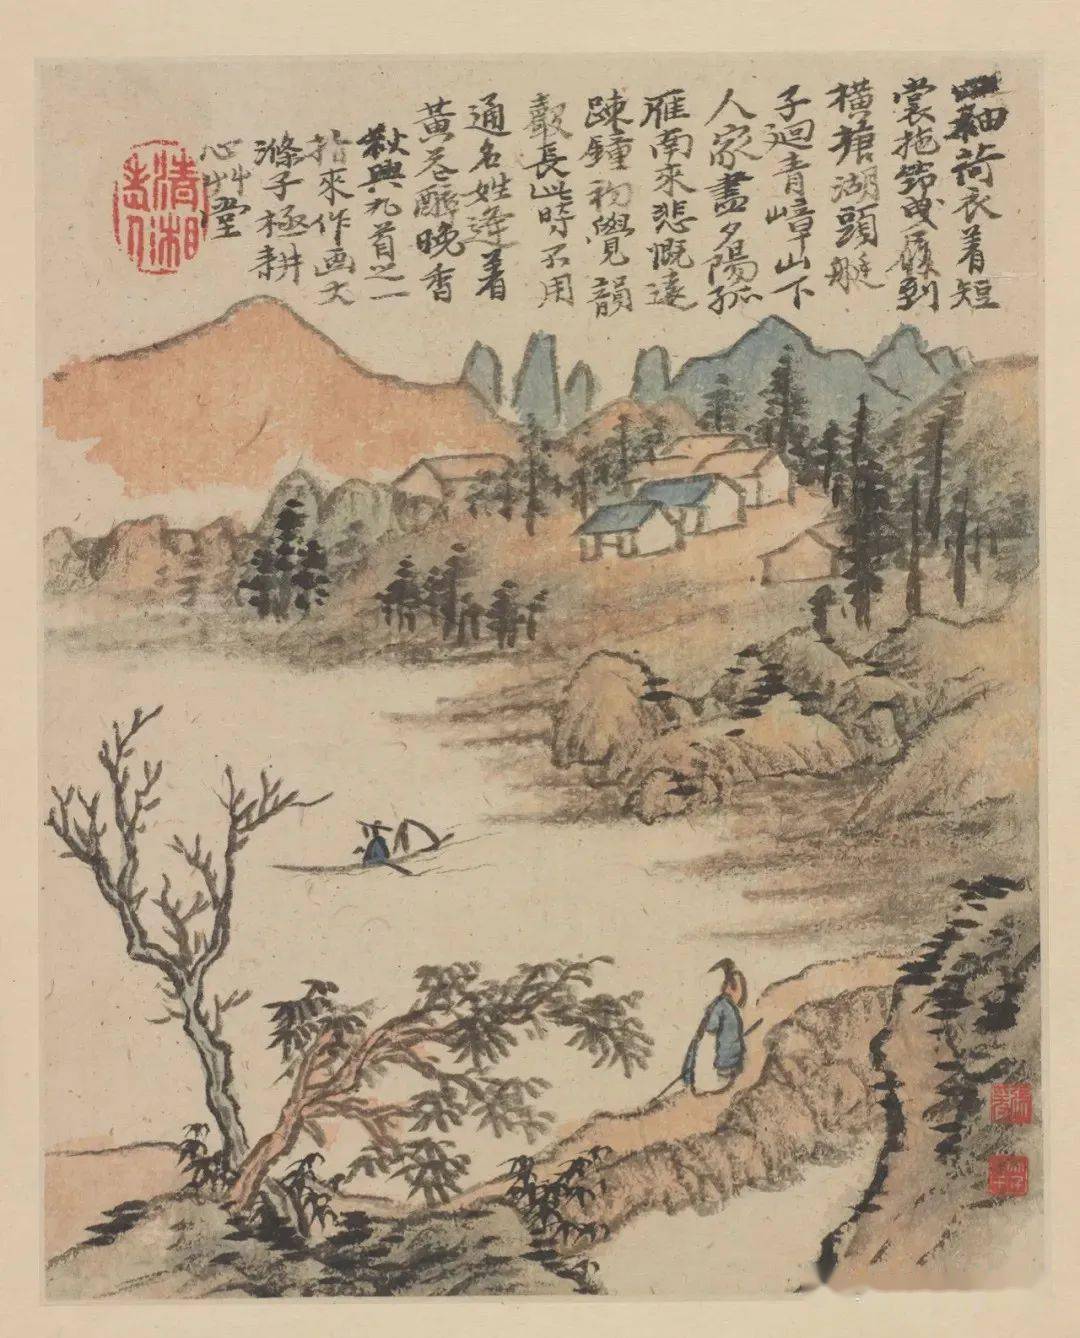 袖荷衣着短
裳拖筇曳履到
橫塘湖頭艇
子迴青嶂山下
人家盡夕陽孤
雁南來悲慨遠
疎鐘初覺韻
長此時不用
通名姓逢着
黃花醉晚香
秋興九首之一
指來作画大
滌子極耕
心艸堂
清湘
老人